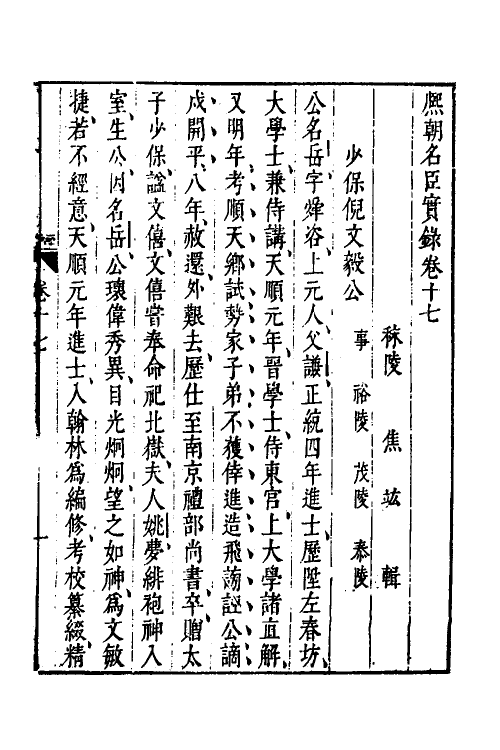 熙朝名臣實錄卷十七
秣陵　焦竑　輯
少保倪文毅公
事　裕陵　茂陵　泰陵
公名岳字舜咨上元人父謙正統四年進士歷陞左春坊
大學士兼侍講天順元年晉學士侍東宮上大學諸直解
又明年考順天鄉試勢家子弟不獲倖進造飛謗誣公謫
戍開平八年赦還外艱去歷仕至南京禮部尚書卒贈太
子少保諡文僖文僖嘗奉命祀北嶽夫人姚夢緋袍神入
室生公因名岳公瓌偉秀異目光炯炯望之如神爲文敏
捷若不經意天順元年進士入翰林爲編修考校纂綴精
卷十七
一